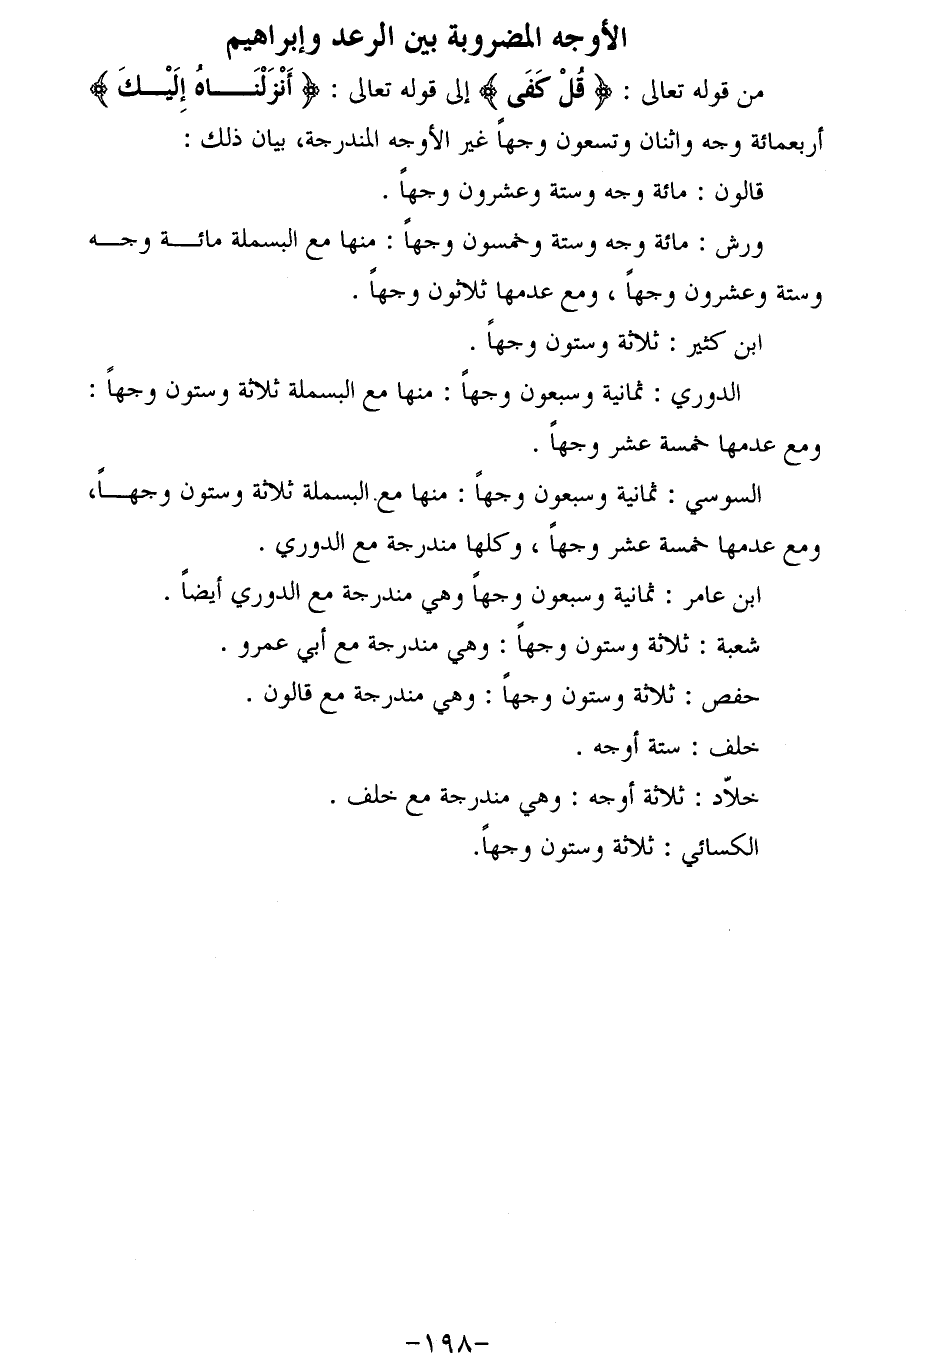 الأوجه المضروبة بين الرعد وإبراهيم
من قوله تعالى : ﴿ قُلْ كَفَى ﴾ إلى قوله تعالى : ﴿ أَنْزَلْنَـــــاهُ إِلَيْـــكَ ﴾
أربعمائة وجه واثنان وتسعون وجهاً غير الأوجه المندرجة، بيان ذلك :
قالون : مائة وجه وستة وعشرون وجهاً .
ورش : مائة وجه وستة وخمسون وجهاً : منها مع البسملة مائـــة وجـــه
وستة وعشرون وجهاً ، ومع عدمها ثلاثون وجهاً .
ابن كثير : ثلاثة وستون وجهاً .
الدوري : ثمانية وسبعون وجهاً : منها مع البسملة ثلاثة وستون وجهاً :
ومع عدمها خمسة عشر وجهاً .
السوسي : ثمانية وسبعون وجهاً : منها مع البسملة ثلاثة وستون وجهـــاً،
ومع عدمها خمسة عشر وجهاً ، وكلها مندرجة مع الدوري .
ابن عامر : ثمانية وسبعون وجهاً وهي مندرجة مع الدوري أيضاً .
شعبة : ثلاثة وستون وجهاً : وهي مندرجة مع أبي عمرو .
حفص : ثلاثة وستون وجهاً : وهي مندرجة مع قالون .
خلف : ستة أوجه .
خلاّد : ثلاثة أوجه : وهي مندرجة مع خلف .
الكسائي : ثلاثة وستون وجهاً.
-١٩٨-